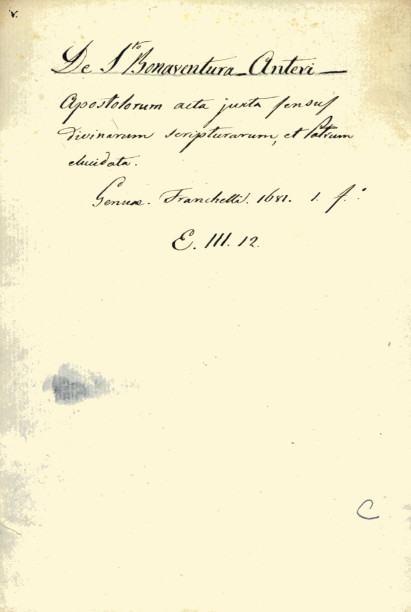 v.
De S.to Bonaventura_Anteri_
Apostolorum acta juxta sensus
divinarum scripturarum, et Patrum
elucidata.
Genuæ. Franchelli. 1681. 1. f.°
E. III. 12.
C